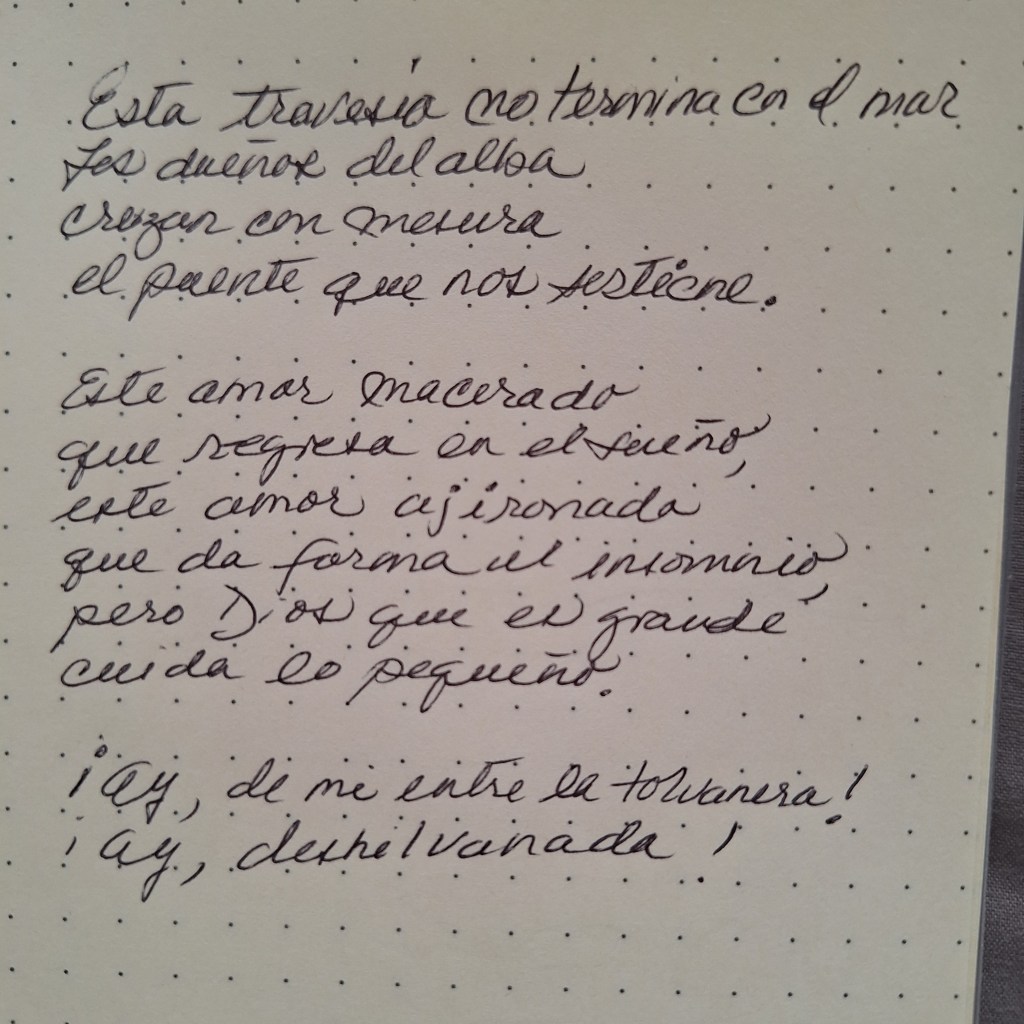 Esta travesía no termina en el mar
Los dueños del alba
cruzan con mesura
el puente que nos sostiene.
Este amor macerado
que regresa en el sueño,
este amor ajironado
que da forma al insomnio,
pero Dios que es grande
cuida lo pequeño.
¡Ay, de mi entre la tolvanera!
¡Ay, deshilvanada!